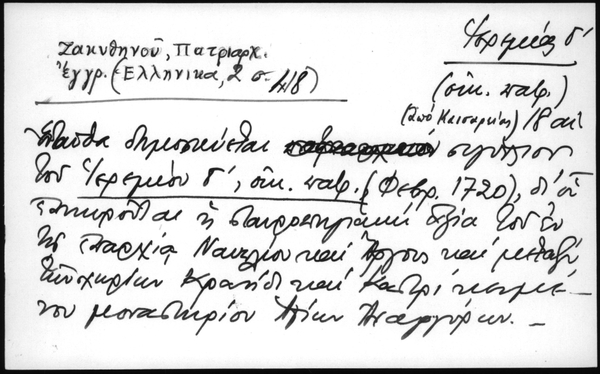 Ζακυθηνοῦ, Πατριαρχ.
ἔγγρ. (Ἑλληνικά, 2 σ. 418)
Ἱερεμίας δ´
(οἰκ. πατρ.)
(ἀπό Καισαρείας) 18 αἰ
Ἐνταῦθα δημοσιεύεται σιγίλλιον
τοῦ Ἱερεμίου δ´, οἰκ. πατρ. (Φεβρ. 1720), δι' οὗ
ἐπικυροῦται ἡ σταυροπηγιακή ἀξία τοῦ ἐν
τῇ ἐπαρχίᾳ Ναυπλίου καί Ἄργους καί μεταξύ
τῶν χωρίων Κρανίδι καί Καστρί κειμέ-
νου μοναστηρίου Ἁγίων Ἀναργύρων. –